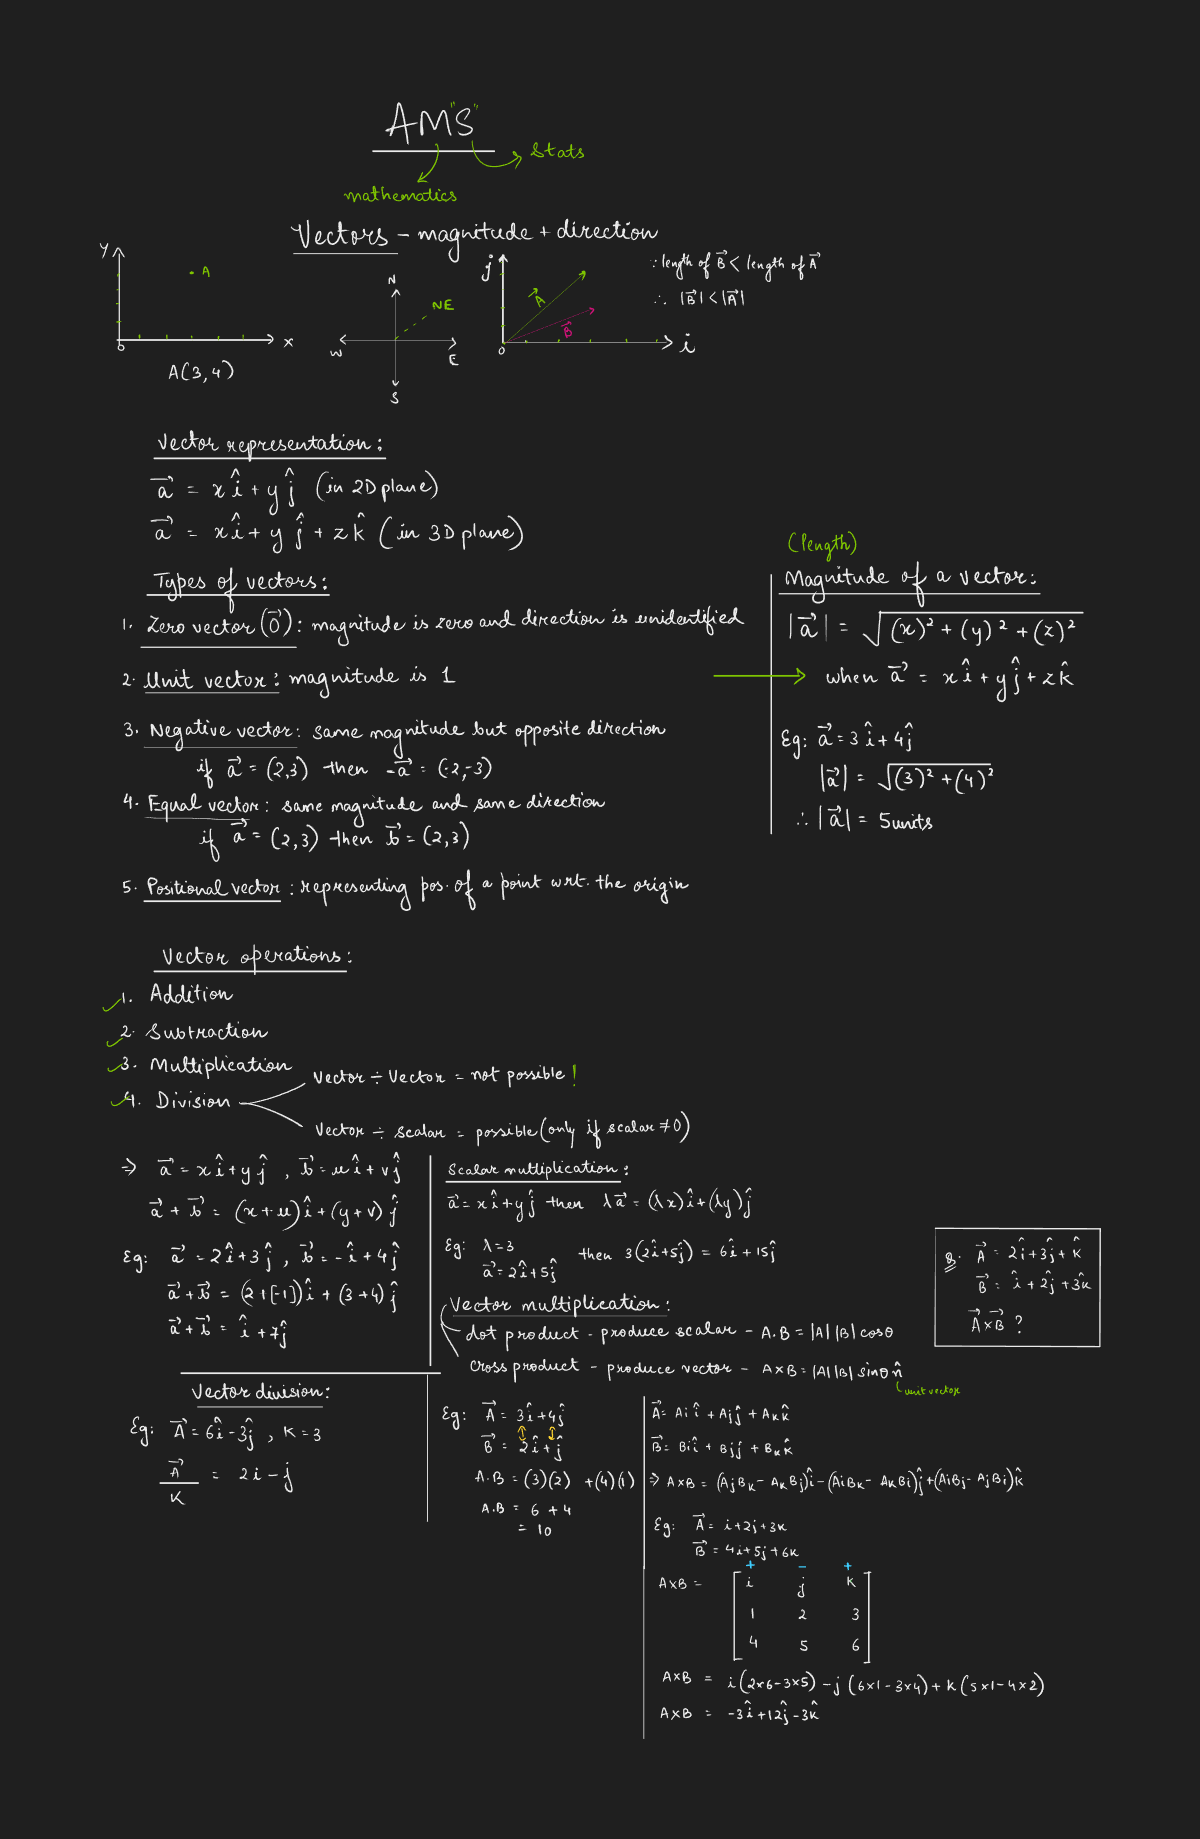 AM"S"
Stats
mathematics
Vectors - magnitude + direction
y
A
0
x
A(3,4)
N
NE
W
E
S
j
A⃗
B⃗
0
i
∵ length of B⃗ < length of A⃗
∴ |B⃗| < |A⃗|
Vector representation:
a⃗ = xî + yĵ (in 2D plane)
a⃗ = xî + yĵ + zk̂ (in 3D plane)
Types of vectors:
1. Zero vector (0⃗): magnitude is zero and direction is unidentified
2. Unit vector: magnitude is 1
3. Negative vector: same magnitude but opposite direction
if a⃗ = (2,3) then -a⃗ = (-2,-3)
4. Equal vector: same magnitude and same direction
if a⃗ = (2,3) then b⃗ = (2,3)
5. Positional vector: representing pos. of a point wrt. the origin
(length)
Magnitude of a vector:
|a⃗| = √(x)² + (y)² + (z)²
→ when a⃗ = xî + yĵ + zk̂
Eg: a⃗ = 3î + 4ĵ
|a⃗| = √(3)² + (4)²
∴ |a⃗| = 5units
Vector operations:
✓1. Addition
✓2. Subtraction
✓3. Multiplication
✓4. Division
Vector ÷ Vector = not possible!
Vector ÷ scalar = possible (only if scalar ≠ 0)
⇒ a⃗ = xî + yĵ , b⃗ = uî + vĵ
a⃗ + b⃗ = (x+u)î + (y+v)ĵ
Eg: a⃗ = 2î + 3ĵ , b⃗ = -î + 4ĵ
a⃗ + b⃗ = (2+[-1])î + (3+4)ĵ
a⃗ + b⃗ = î + 7ĵ
Scalar multiplication:
a⃗ = xî + yĵ then λa⃗ = (λx)î + (λy)ĵ
Eg: λ = 3
a⃗ = 2î + 5ĵ
then 3(2î + 5ĵ) = 6î + 15ĵ
Vector multiplication:
dot product - produce scalar - A.B = |A||B| cosθ
cross product - produce vector - A×B = |A||B| sinθ n̂
unit vector
Q. A⃗ = 2î + 3ĵ + k̂
B⃗ = î + 2ĵ + 3k̂
A⃗×B⃗ ?
Vector division:
Eg: A⃗ = 6î - 3ĵ , K = 3
A⃗/K = 2i - j
Eg: A⃗ = 3î + 4ĵ
B⃗ = 2î + ĵ
A.B = (3)(2) + (4)(1)
A.B = 6 + 4
= 10
A⃗ = Aiî + Ajĵ + Akk̂
B⃗ = Biî + Bjĵ + Bkk̂
⇒ A×B = (AjBk - AkBj)î - (AiBk - AkBi)ĵ + (AiBj - AjBi)k̂
Eg: A⃗ = i + 2j + 3k
B⃗ = 4i + 5j + 6k
+ - +
A×B = i j k
1 2 3
4 5 6
A×B = i(2×6-3×5) - j(6×1-3×4) + k(5×1-4×2)
A×B = -3î + 12ĵ - 3k̂